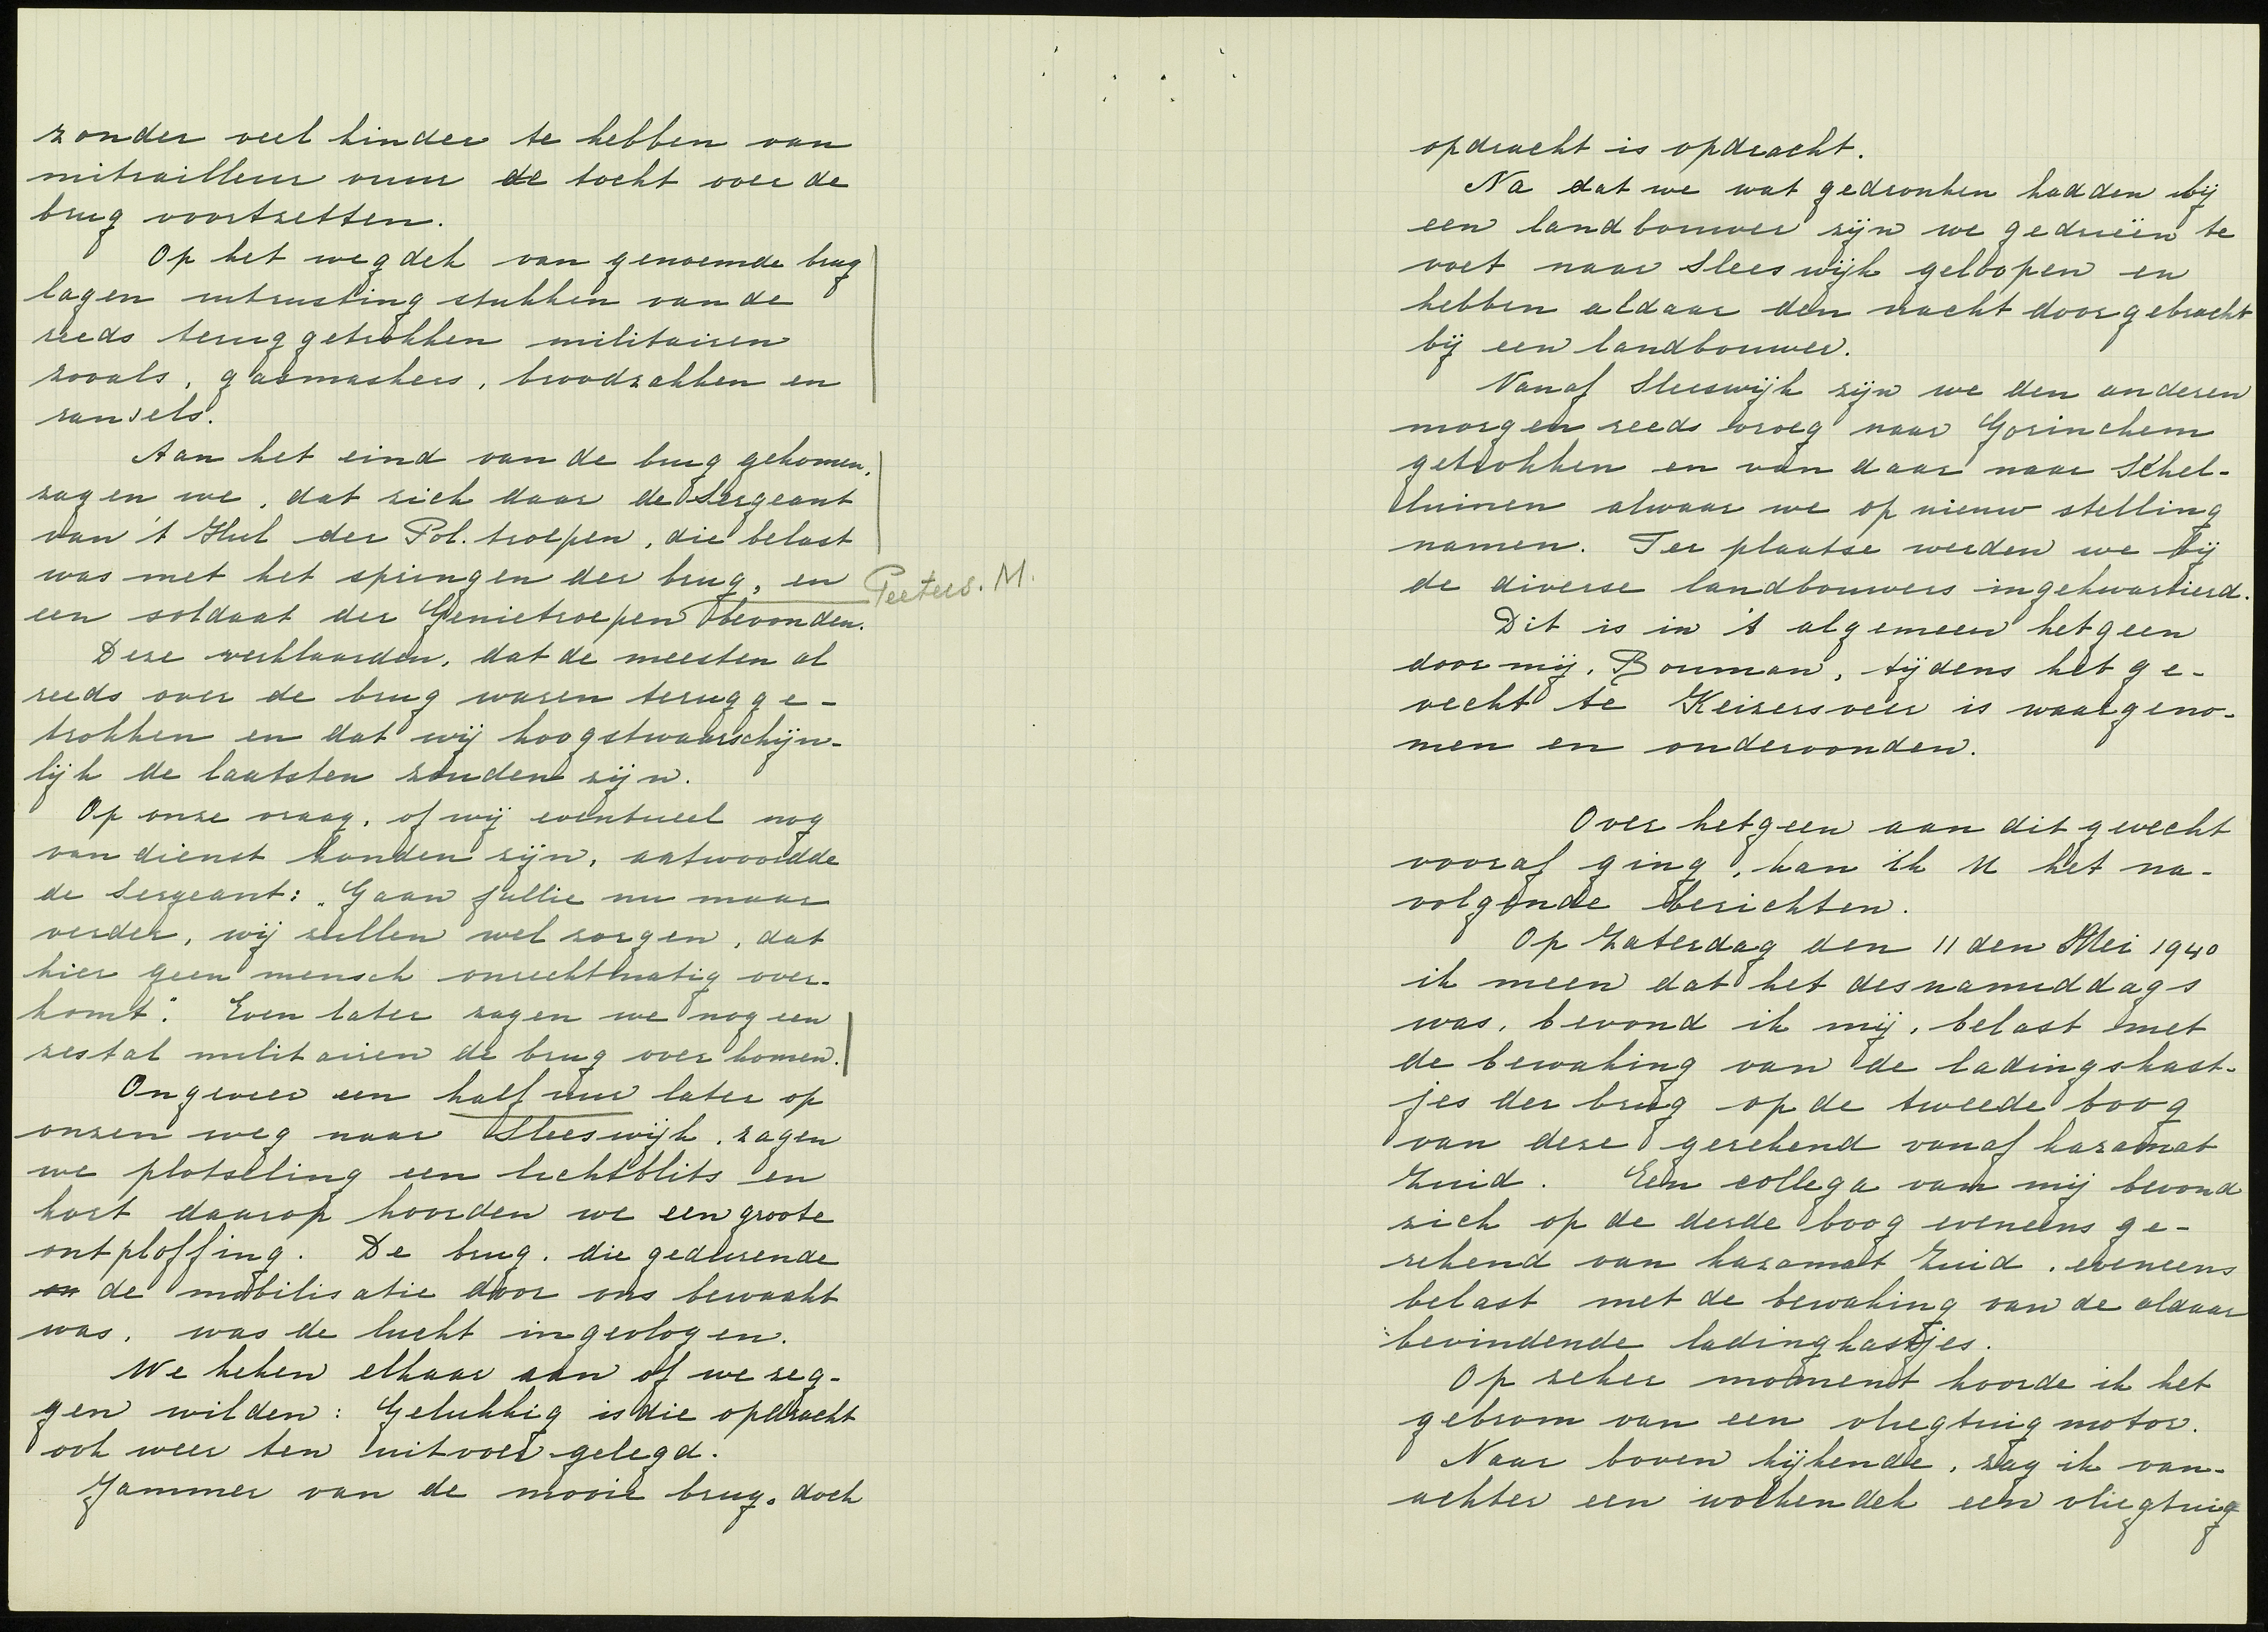 zonder veel hinder te hebben van
mitrailleur vuur de tocht over de
brug voortzetten.
Op het wegdek van genoemde brug
lagen uitrusting stukken van de
reeds teruggetrokken militairen
zooals, gasmaskers, broodzakken en
ransels.
Aan het eind van de brug gekomen,
zagen we, dat zich daar de Sergeant
van 't Hul der Pol. troepen, die belast
was met het springen der brug, en Peeters. M.
een soldaat der Genietroepen bevonden.
Deze verklaarden, dat de meesten al
reeds over de brug waren terugge-
trokken en dat wij hoogstwaarschijn-
lijk de laatsten zouden zijn.
Op onze vraag, of wij eventueel nog
van dienst konden zijn, antwoordde
de Sergeant: „Gaan jullie nu maar
verder, wij zullen wel zorgen, dat
hier geen mensch onrechtmatig over-
komt". Even later zagen we nog een
zestal militairen de brug over komen.
Ongeveer een half uur later op
onzen weg naar Sleeswijk, zagen
we plotseling een lichtblits en
kort daarop hoorden we een groote
ontploffing. De brug, die gedurende
en de mobilisatie door ons bewaakt
was, was de lucht ingevlogen.
We keken elkaar aan of we zeg-
gen wilden: Gelukkig is die opdracht
ook weer ten uitvoer gelegd.
Jammer van de mooie brug, doch
opdracht is opdracht.
Na dat we wat gedronken hadden bij
een landbouwer zijn we gedrieën te
voet naar Sleeswijk geloopen en
hebben aldaar den nacht doorgebracht
bij een landbouwer.
Vanaf Sleeswijk zijn we den anderen
morgen reeds vroeg naar Gorinchem
getrokken en van daar naar Schel-
luinen alwaar we op nieuw stelling
namen. Ter plaatse werden we bij
de diverse landbouwers ingekwartierd.
Dit is in 't algemeen hetgeen
door mij, Bouman, tijdens het ge-
vecht te Keizersveer is waargeno-
men en ondervonden.
Over hetgeen aan dit gevecht
vooraf ging, kan ik U het na-
volgende berichten.
Op Zaterdag den 11 den Mei 1940
ik meen dat het desnamiddags
was, bevond ik mij, belast met
de bewaking van de ladingskast-
jes der brug op de tweede boog
van deze gerekend vanaf kazamat
Zuid. Een collega van mij bevond
zich op de derde boog eveneens ge-
rekend van kazamat Zuid, eveneens
belast met de bewaking van de aldaar
bevindende ladingkastjes.
Op zeker moment hoorde ik het
gebrom van een vliegtuig motor.
Naar boven kijkende, zag ik van-
achter een wolkendek een vliegtuig